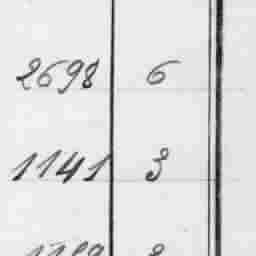 2698 6
1141 3